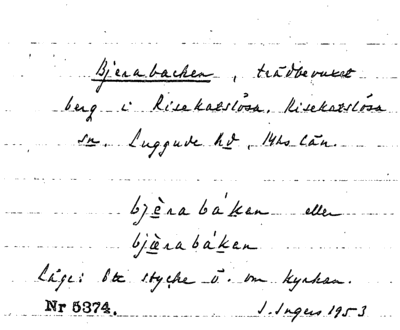 Bjerabacken, trädbevuxet
berg i Risekatslösa, Risekatslösa
sn. Luggude hd, Mhs län.
bjèrabákan eller
bjæ̀rabákan
Läge: Ett stycke ö. om kyrkan.
Nr 5374. I. Ingers 1953